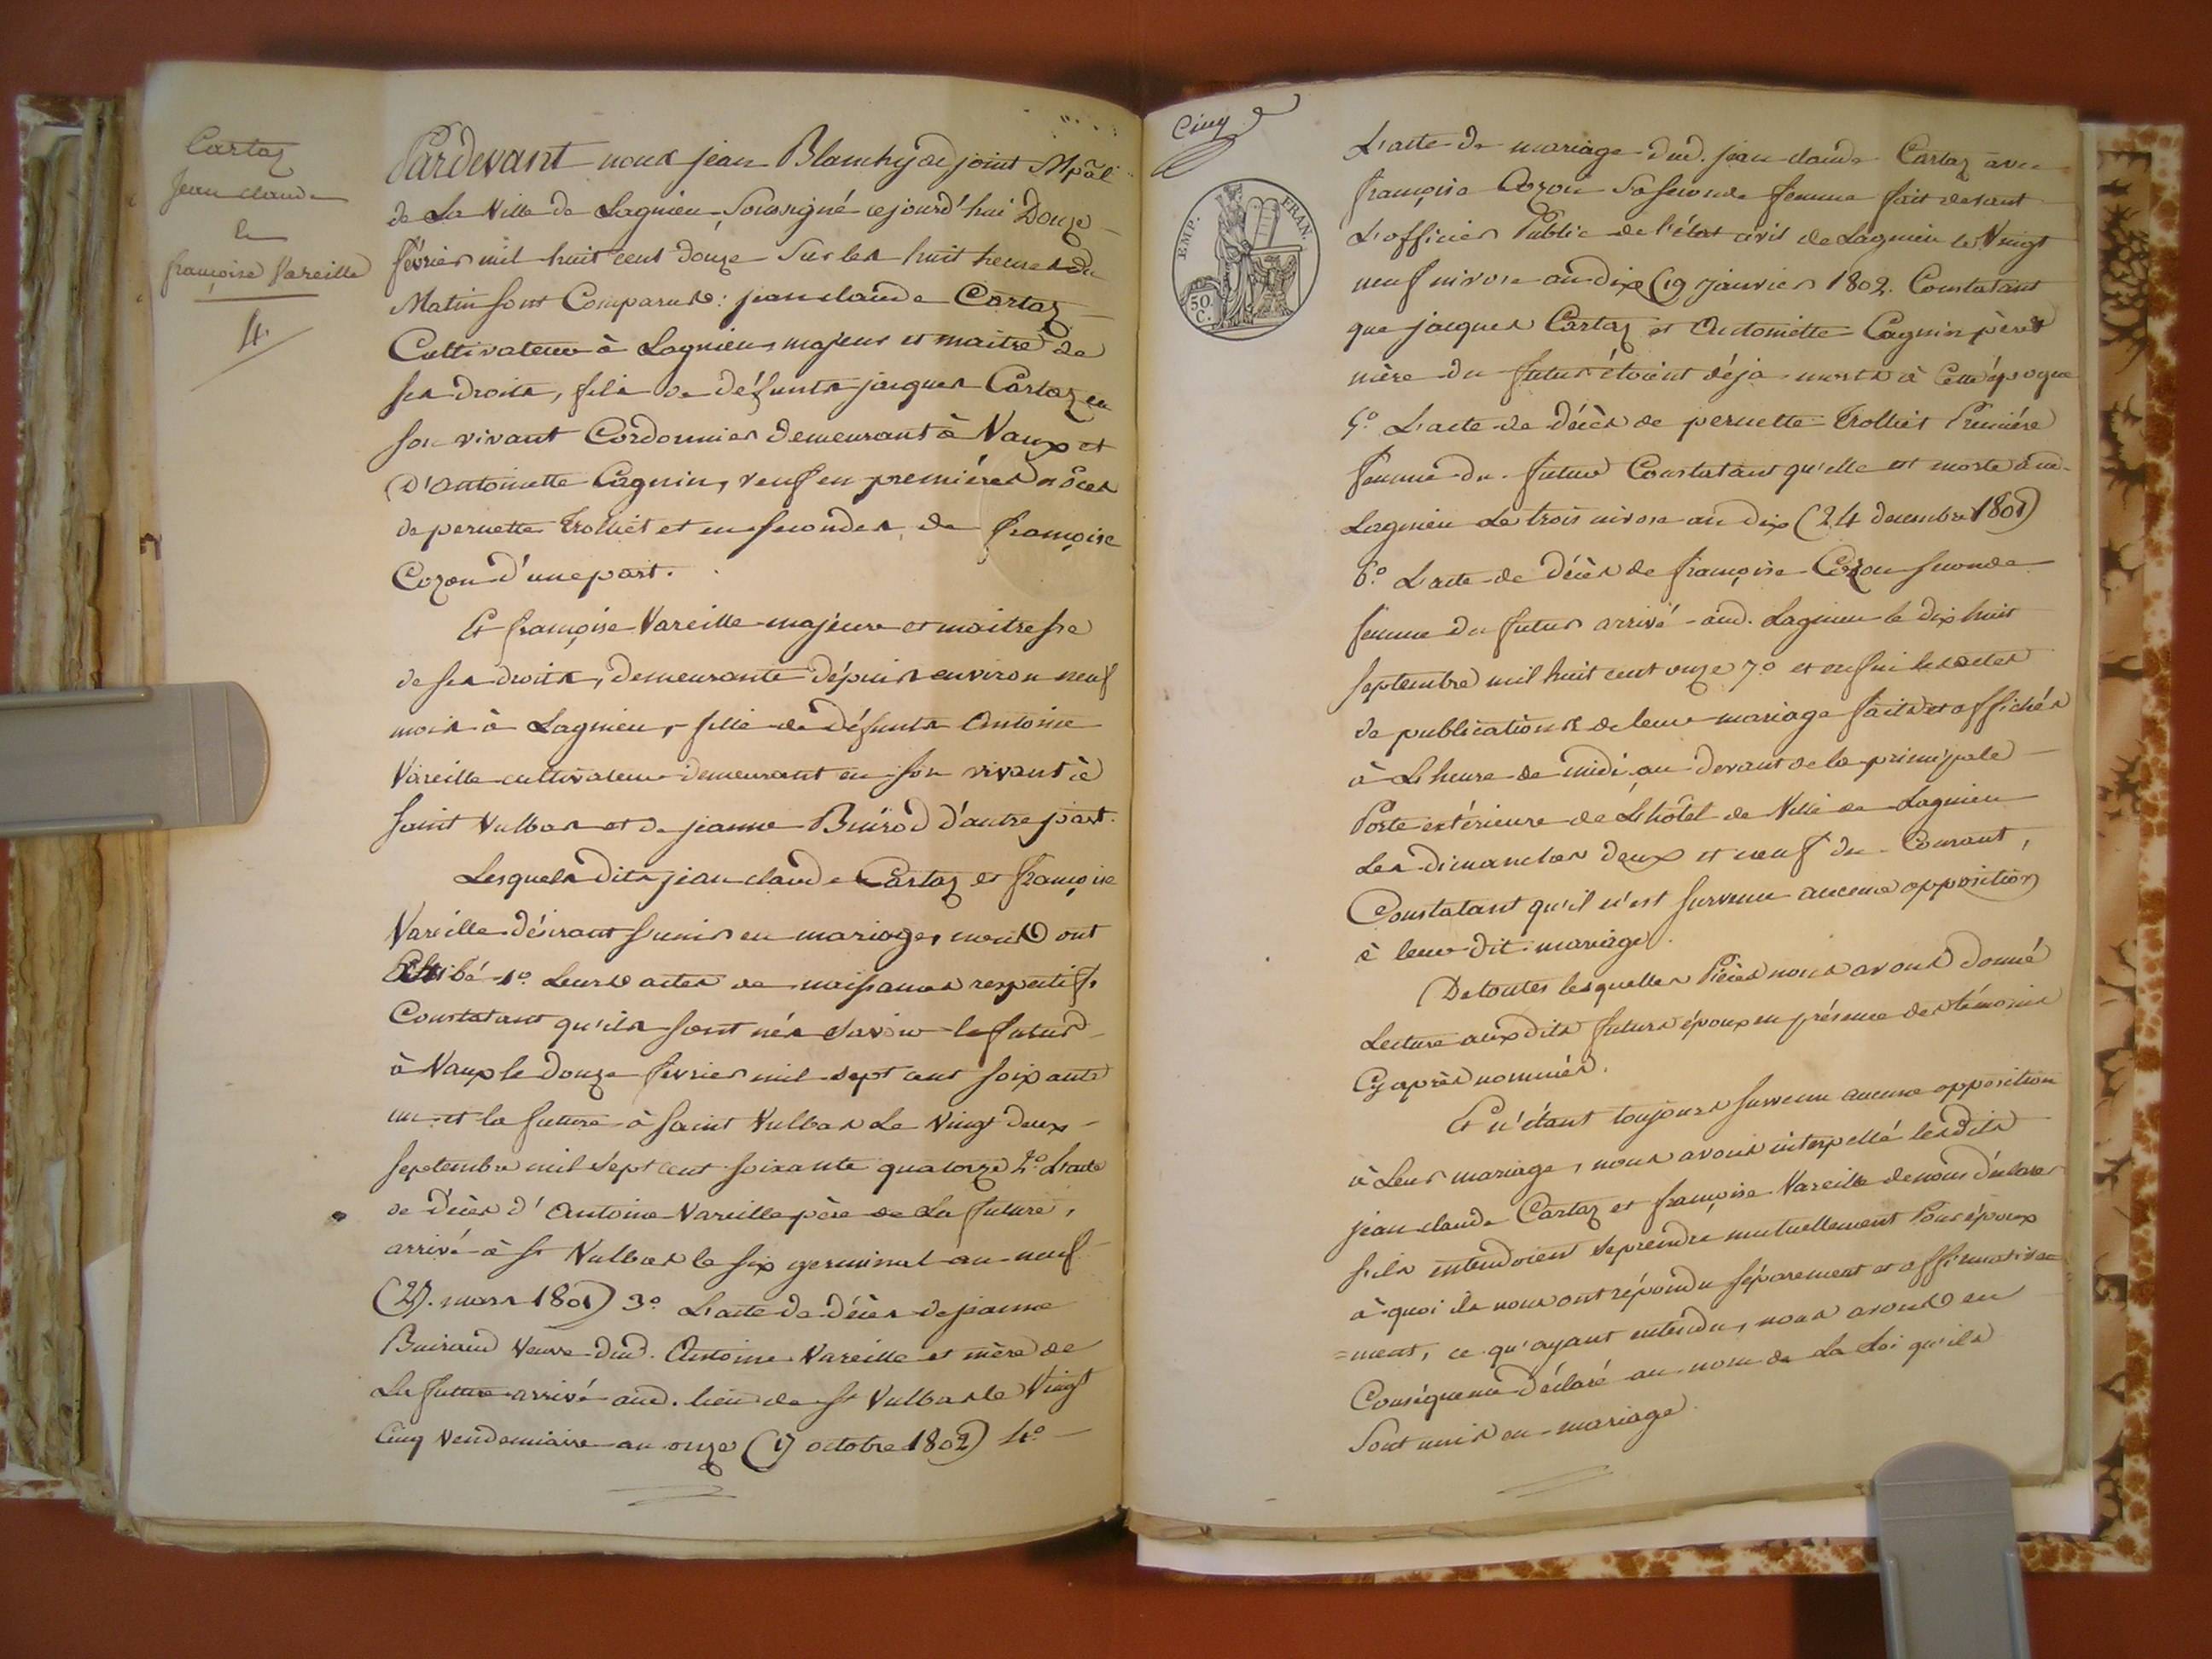 Cartaz
Jean claude
&
françoise Vareille
4
Pardevant nous jean Blanchy adjoint Mpãl
de La Ville de Lagnieu Soussigné cejourd'hui Douze
février mil huit cent douze Sur les huit heures du
Matin sont Comparus : jean claude Cartaz
Cultivateur à Lagnieu, majeur et maitre de
ses droits, fils de défunts jacques Cartaz en
son vivant Cordonnier demeurant à Vaux et
D'antoinette Cagnin, veuf en premières nôces
de pernette Trolliet et en secondes, de françoise
Cozon d'une part.
Et françoise Vareille majeure et maitresse
de ses droits, demeurante dépuis environ neuf
mois à Lagnieu, fille de défunts Antoine
Vareille cultivateur demeurant en son vivant à
saint Vulbas et de jeanne Buirod d'autre part.
Lesquels dits jean claude Cartaz et françoise
Vareille désirant s'unir en mariage, nous ont
Exhibé 1º Leurs actes de naissances respectifs
Constatant qu'ils sont nés savoir le futur
à Vaux le douze fevrier mil sept cent soixante
un et la future à saint Vulbas Le Vingt deux
septembre mil sept cent soixante quatorze 2º L'acte
de décès d'Antoine Vareille père de La future,
arrivé à St Vulbas le six germinal an neuf
(27. mars 1801) 3º L'acte de décès de jeanne
Buiraud Veuve dud. Antoine Vareille et mère de
La future arrivé aud. lieu de St Vulbas le Vingt
Cinq Vendemiaire an onze (17 octobre 1802) 4º
Cinq
EMP. FRAN.
50.
C.
L'acte de mariage dud. jean claude Cartaz avec
françoise Cozon Sa seconde femme fait devant
L'officier Public de l'état civil de Lagnieu le Vingt
neuf nivose an dix (19 janvier 1802. Constatant
que jacques Cartaz et Antoinette Cagnin père &
mère du futur étoient déja morts à Cette époque
5º L'acte de décès de pernette Trolliet Premiére
femme du futur Constatant qu'elle est morte aud.
Lagnieu Le trois nivose an dix (24 decembre 1801)
6º L'acte de décès de françoise Cozon seconde
femme du futur arrivé aud. Lagnieu le dix huit
septembre mil huit cent onze 7º et enfin les actes
de publications de leur mariage faits et affichés
à L'heure de midi au devant de la principale
Porte extérieure de L'hôtel de Ville de Lagnieu
Les dimanches deux et neuf du Courant,
Constatant qu'il n'est survenu aucune opposition
à leur dit mariage.
De toutes lesquelles Pièces nous avons donné
Lecture aux dits futurs époux en présence des témoins
Cy après nommés.
Et n'étant toujours survenu aucune opposition
à Leur mariage, nous avons interpellé lesdits
jean claude Cartaz et françoise Vareille de nous déclarer
s'ils entendoient se prendre mutuellement Pour époux
à quoi ils nous ont répondu séparement et affirmative
=ment, ce qu'ayant entendu, nous avons en
Conséquence déclaré au nom de La Loi qu'ils
Sont unis en mariage.